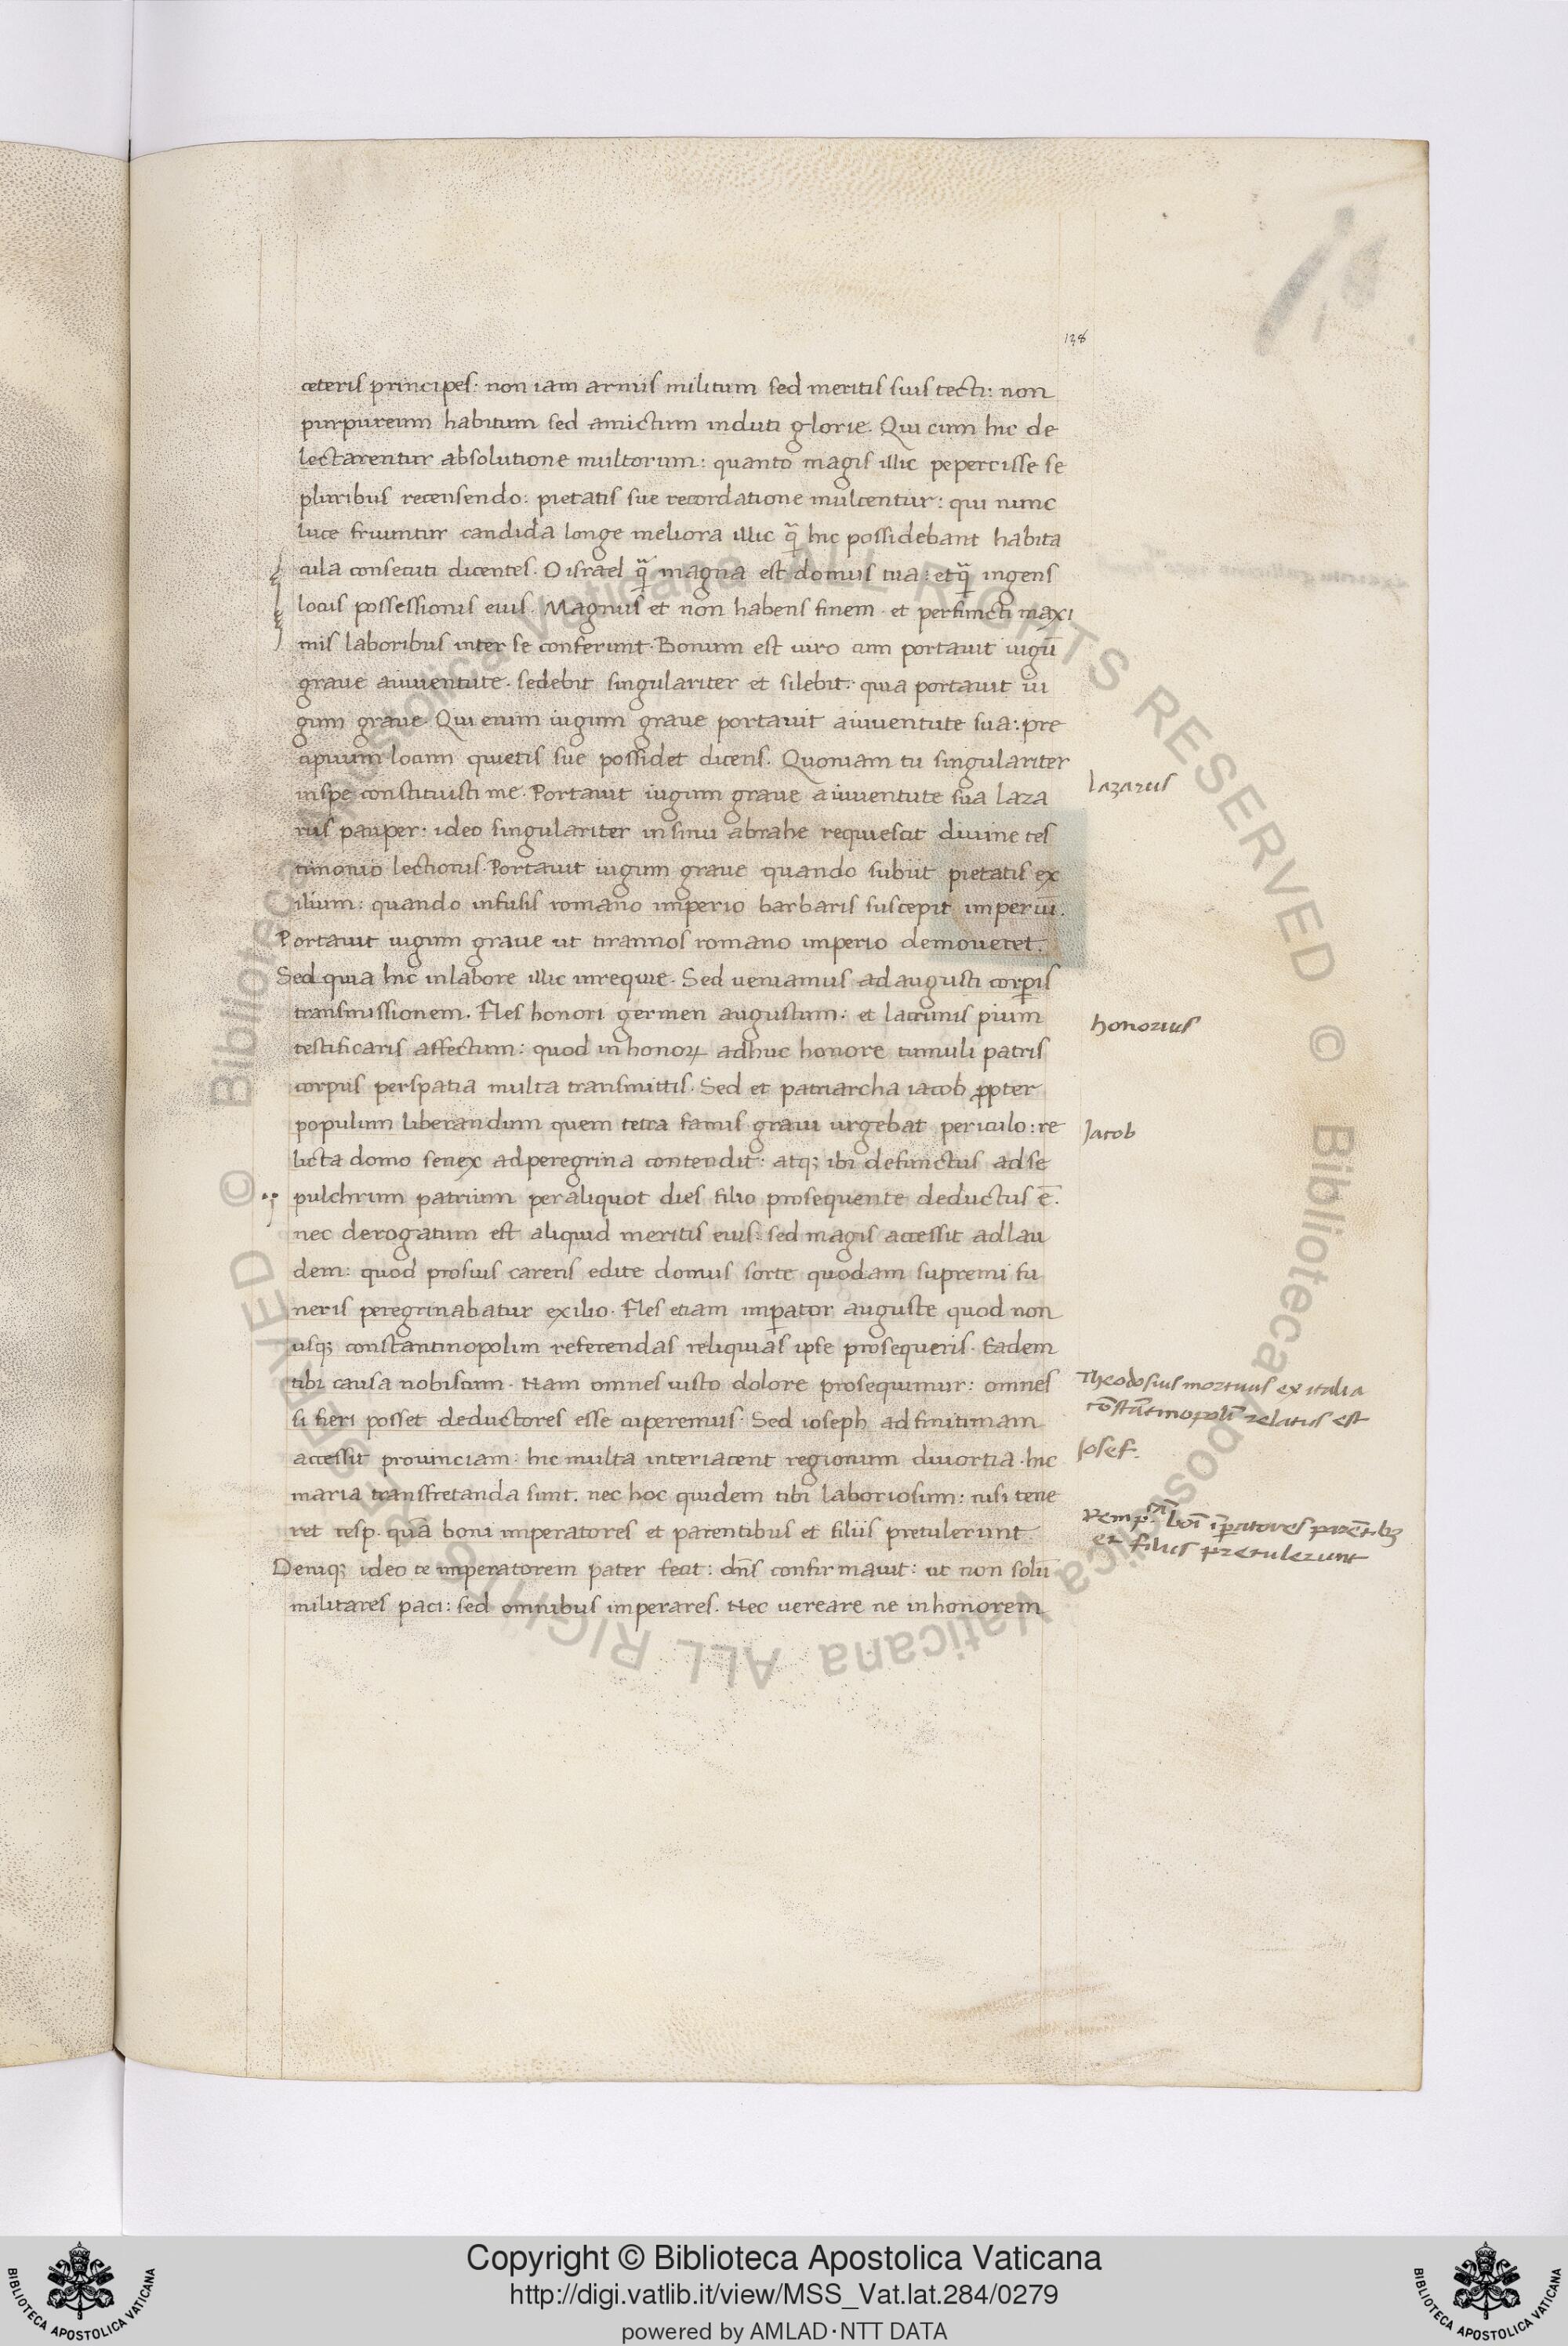 138
ceteris principes: non iam armis militum sed meritis suis tecti: non
purpureum habitum sed amictum induti glorie. Qui cum hic de
lectarentur absolutione multorum: quanto magis illic pepercisse se
pluribus recensendo: pietatis sue recordatione mulcentur: qui nunc
luce fruuntur candida longe meliora illic q̄ hic possidebant habita
cula consecuti dicentes. O israel q̄ magna est domus tua: et q̄ ingens
locus possessionis eius. Magnus et non habens finem. et perfuncti maxi
mis laboribus inter se conferunt. Bonum est uiro cum portauit iugū
graue a iuuentute. sedebit singulariter et silebit: quia portauit iu
gum graue. Qui enim iugum graue portauit a iuuentute sua: pre
cipuum locum quietis sue possidet dicens. Quoniam tu singulariter
in spe constituisti me. Portauit iugum graue a iuuentute sua laza
Lazarus
rus pauper: ideo singulariter in sinu abrahe requiescit diuine tes
timonio lectionis. Portauit iugum graue quando subiit pietatis ex
ilium: quando infusis romano imperio barbaris suscepit imperiū.
Portauit iugum graue ut tirannos romano imperio demoueret.
Sed quia hic in labore illic in requie. Sed ueniamus ad augusti corp̄is
transmissionem. Fles honori germen augustum: et lacrimis pium
honorius
testificaris affectum: quod in honoꝝ adhuc honore tumuli patris
corpus per spatia multa transmittis. Sed et patriarcha iacob ꝓpter
populum liberandum quem tetra famis graui urgebat periculo: re
Jacob
licta domo senex ad peregrina contendit: atq; ibi defunctus ad se
pulchrum patrium per aliquot dies filio prosequente deductus ē.
nec derogatum est aliquid meritis eius: sed magis accessit ad lau
dem: quod prosuis carens edite domus sorte quodam supremi fu
neris peregrinabatur exilio. Fles etiam imp̄ator auguste quod non
usq; constantinopolim referendas reliquias ipse prosequeris. Eadem
tibi causa nobiscum. Nam omnes iusto dolore prosequimur: omnes
Theodosius mortuus ex italia
cōstātinopolī relatus est
si fieri posset deductores esse cuperemus. Sed ioseph ad finitimam
accessit prouinciam: hic multa interiacent regionum diuortia. hic
Josef.
maria transfretanda sunt. nec hoc quidem tibi laboriosum: nisi tene
ret resp. quā boni imperatores et parentibus et filiis pretulerunt.
Remp. boī īp̄atores parētibȝ
et filiis pretulerunt
Deniq; ideo te imperatorem pater fecit: dn̄s confirmauit: ut non solū
militares paci: sed omnibus imperares. Nec uereare ne in honorem
© Biblioteca Apostolica Vaticana ALL RIGHTS RESERVED © Biblioteca Apostolica Vaticana ALL RIGHTS RESERVED
Copyright © Biblioteca Apostolica Vaticana
http://digi.vatlib.it/view/MSS_Vat.lat.284/0279
powered by AMLAD·NTT DATA
BIBLIOTECA APOSTOLICA VATICANA
BIBLIOTECA APOSTOLICA VATICANA